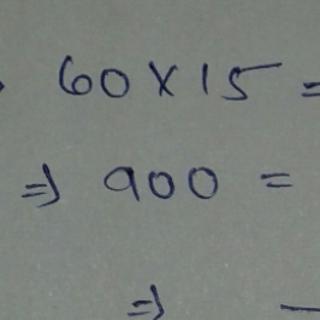 60 × 15 =
⇒ 900 =
⇒ —